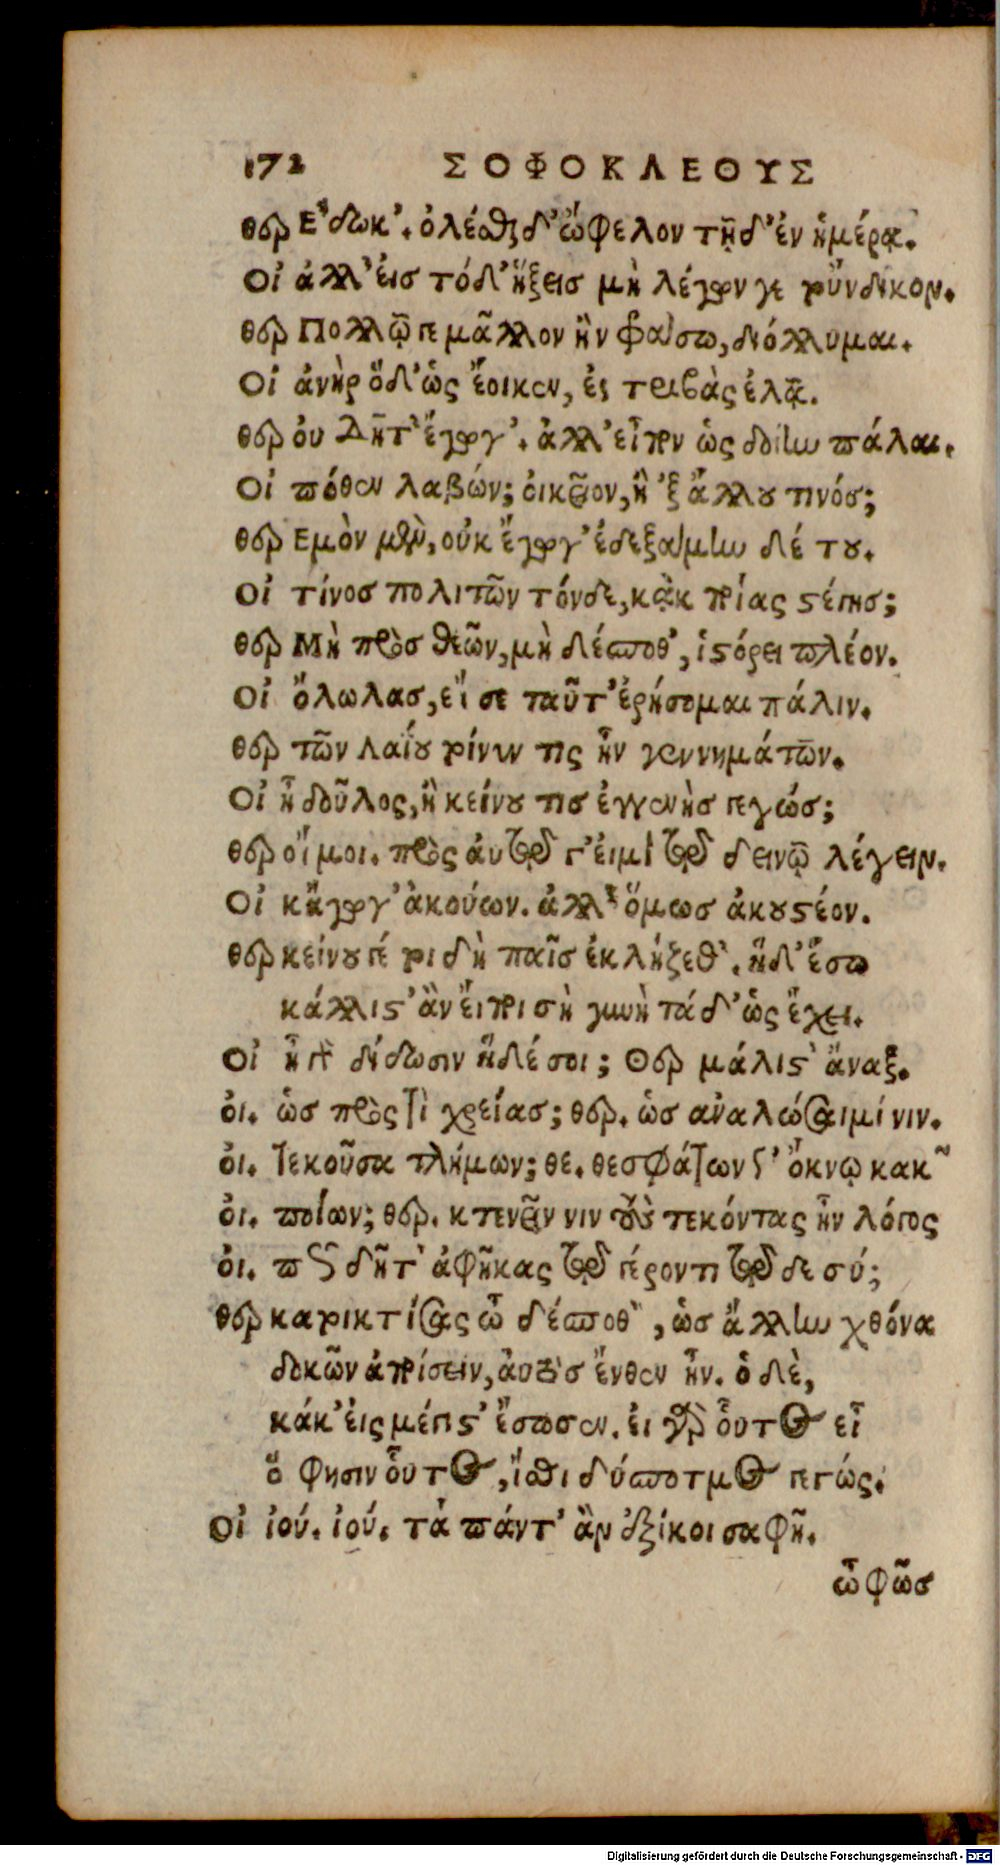 172 ΣΟΦΟΚΛΕΟΥΣ
θερ Ἔδωκ'. ὀλέσθαι δ' ὤφελον τῇδ' ἐν ἡμέρᾳ.
Οἰ ἀλλ' εἰσ τόδ' ἥξεισ μὴ λέγων γε τοὔνδικον.
θερ Πολλῷ γε μᾶλλον ἢν φράσω, διόλλυμαι.
Οἰ ἀνὴρ ὅδ' ὡς ἔοικεν, ἐς τριβὰς ἐλᾷ.
θερ οὐ δῆτ' ἔγωγ'. ἀλλ' εἶπον ὡς δοίην πάλαι.
Οἰ πόθεν λαβών; οἰκεῖον, ἢ 'ξ ἄλλου τινόσ;
θερ Εμὸν μὲν, οὐκ ἔγωγ' ἐδεξάμην δέ του.
Οἰ τίνοσ πολιτῶν τόνδε, κᾀκ ποίας στέγησ;
θερ Μὴ πρὸσ θεῶν, μὴ δέσποθ', ἱστόρει πλέον.
Οἰ ὄλωλασ, εἴ σε ταῦτ' ἐρήσομαι πάλιν.
θερ τῶν Λαΐου τοίνυν τις ἦν γεννημάτων.
Οἰ ἦ δοῦλος, ἢ κείνου τισ ἐγγενὴσ γεγώσ;
θερ οἴμοι. πρὸς αὐτῷ γ' εἰμὶ τῷ δεινῷ λέγειν.
Οἰ κἄγωγ' ἀκούων. ἀλλ' ὅμωσ ἀκουστέον.
θερ κείνου γέ τοι δὴ παῖσ ἐκλῄζεθ'. ἥδ' ἔσω
κάλλιστ' ἂν εἴποι σὴ γυνὴ τάδ' ὡς ἔχει.
Οἰ ἦ γὰρ δίδωσιν ἥδέ σοι; Θερ μάλιστ' ἄναξ.
οἰ. ὡσ πρὸς τί χρείας; θερ. ὡσ ἀναλώσαιμί νιν.
οἰ. τεκοῦσα τλήμων; θε. θεσφάτων γ' ὄκνῳ κακ~
οἰ. ποίων; θερ. κτενεῖν νιν τοὺς τεκόντας ἦν λόγος
οἰ. πῶς δῆτ' ἀφῆκας τῷ γέροντι τῷδε σύ;
θερ κατοικτίσας ὦ δέσποθ', ὡσ ἄλλην χθόνα
δοκῶν ἀποίσειν, αὐτὸσ ἔνθεν ἦν. ὁ δὲ,
κάκ' εἰς μέγιστ' ἔσωσεν. εἰ γὰρ οὗτος εἶ
ὅ φησιν οὗτος, ἴσθι δύσποτμος γεγώς.
Οἰ ἰού. ἰού. τὰ πάντ' ἂν ἐξίκοι σαφῆ.
ὦ φῶσ
Digitalisierung gefördert durch die Deutsche Forschungsgemeinschaft - DFG